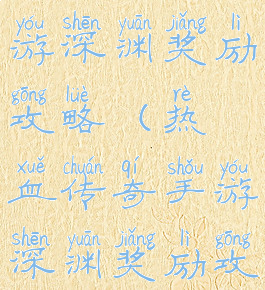 yóu shēn yuān jiǎng lì
游深渊奖励
gōng lüè rè
攻略（热
xuě chuán qí shǒu yóu
血传奇手游
shēn yuān jiǎng lì gōng
深渊奖励攻